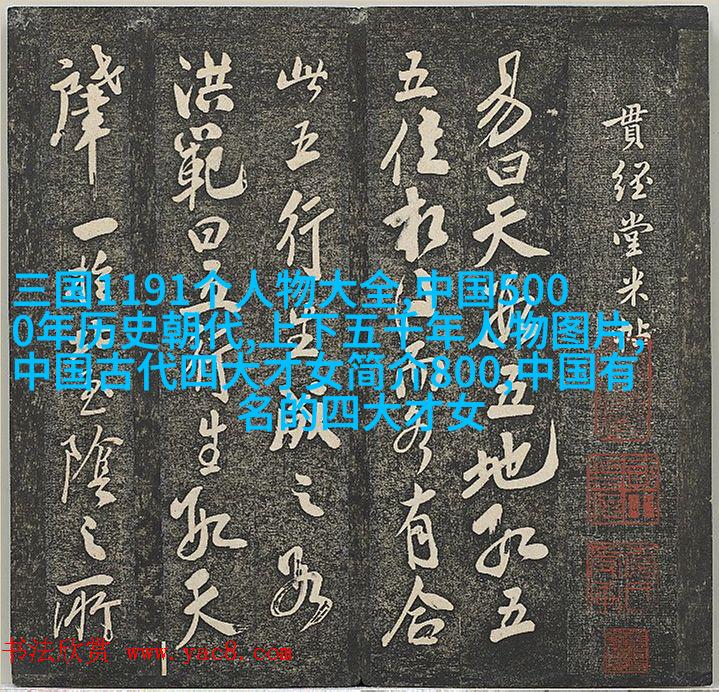 貫經堂米帖
易曰天數五地數五
五位相得而各有合
此五行生之數
洪範曰五行生數天
肇一陰之所
三国1191个人物大全,中国500
0年历史朝代,上下五千年人物图片,
中国古代四大才女简介800,中国有
名的四大才女
书法欣赏 www.yac8.com